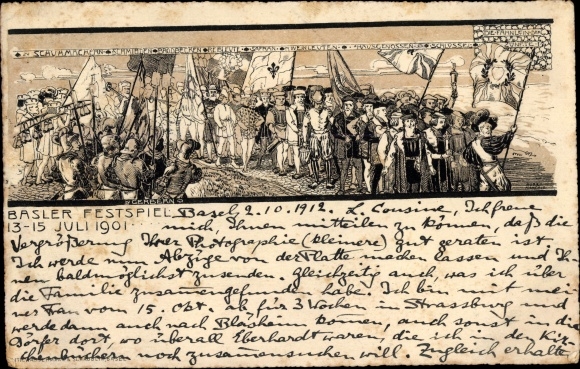 SCHUMMACHERN SCHMIDEN
REBLEUTE
HAUSGENOSSEN SCHLÜSSEL
DIE FÄHNLEIN DER
ZÜNFTE
GERBERN
BASLER FESTSPIEL
13-15 JULI 1901
Basel, 2.10.1912. L. Cousine, Ich freue
mich, Ihnen mitteilen zu können, daß die
Vergrößerung Ihrer Photographie (kleinere) gut geraten ist.
Ich werde nun Abzüge von der Platte machen lassen und Ih-
nen baldmöglichst zusenden. Gleichzeitig auch, was ich über
die Familie zusammengefunden habe. Ich bin mit mei-
ner Frau vom 15 Okt. ab für 3 Wochen in Strassburg und
werde dann auch nach Bläsheim kommen, auch sonst in die
Dörfer dort, wo überall Eberhardt waren, die ich in den Kir-
chenbüchern noch zusammensuchen will. Zugleich erhalte